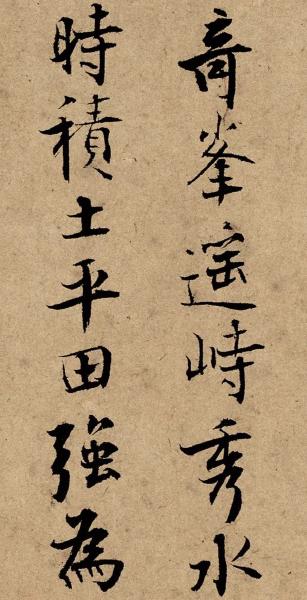 奇峯遥峙秀水
時積土平田強為